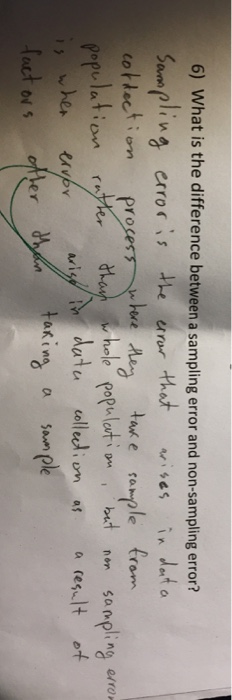 6) What is the difference between a sampling error and non-sampling error?
Sampling error is the error that arises in data
collection process where they take sample from
population rather than whole population, but non sampling error
is when error arise in data collection as a result of
factors other than taking a sample